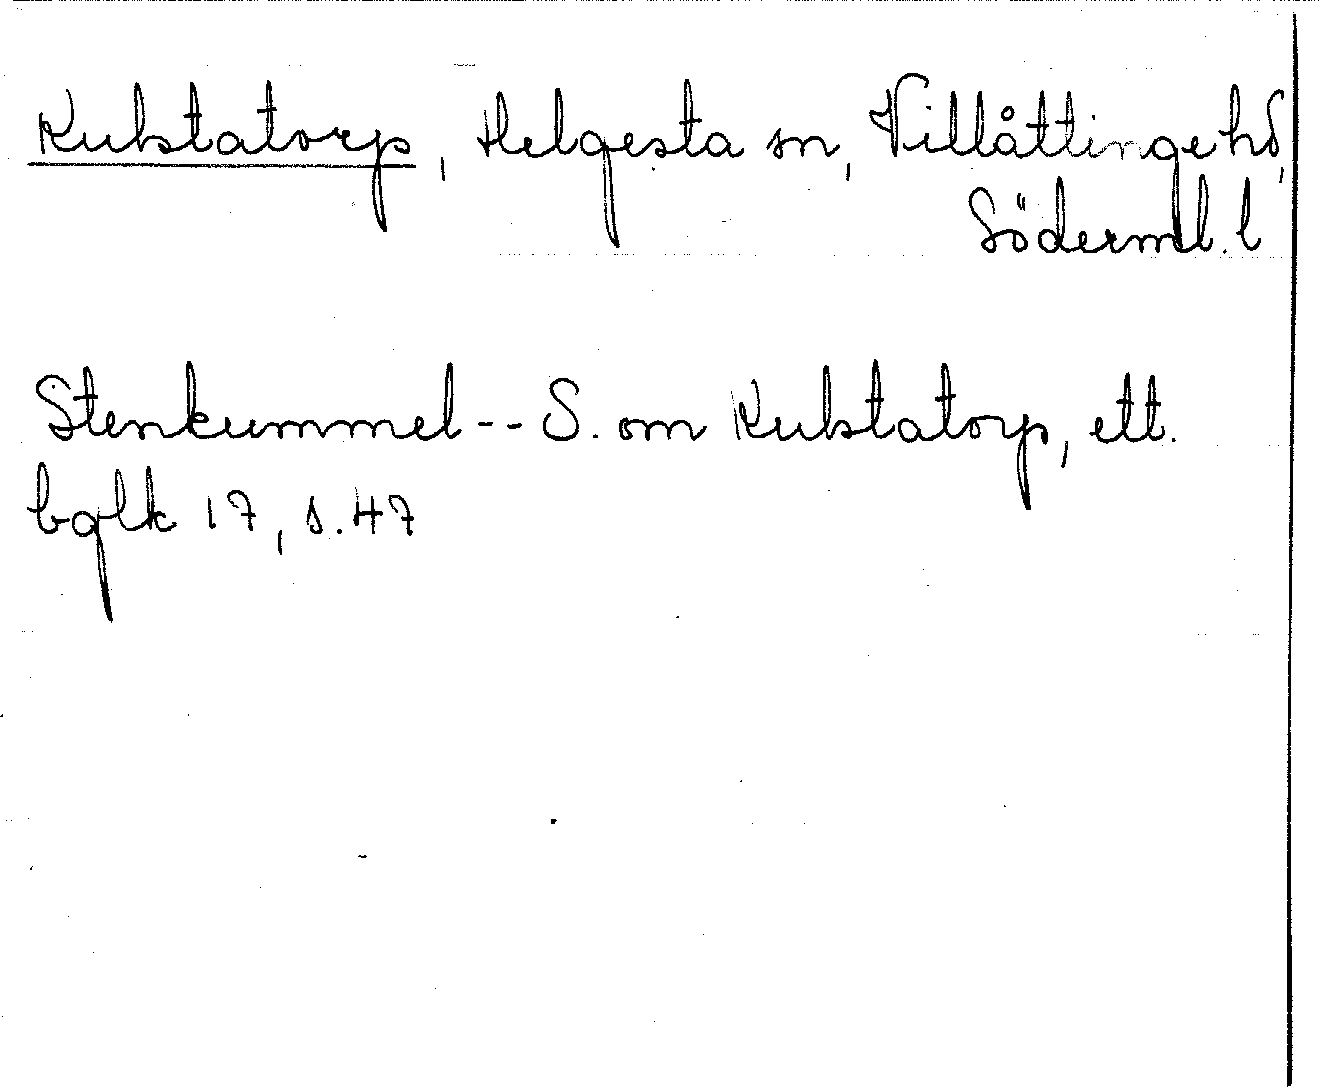 Kubstatorp, Helgesta sn, Villåttinge hd,
Söderml. l
Stenkummel -- S. om Kubstatorp, ett.
bglk 17, s. 47